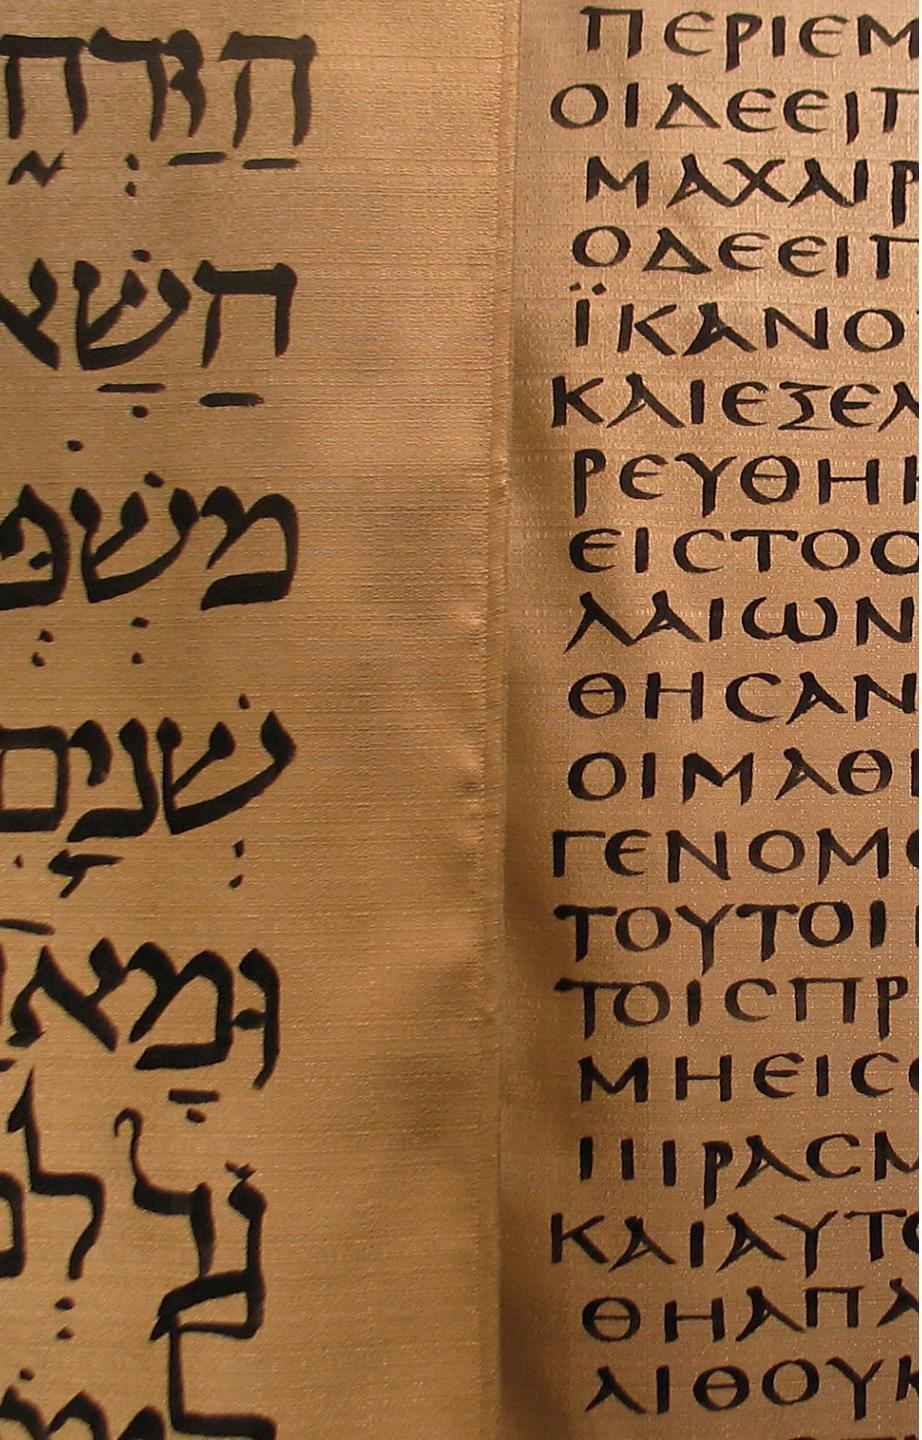 הַזַּרְח
הַשָּׁא
מִשְׁפְּ
שְׁנַיִם
וּמָא
ΠΕΡΙΕΜ
ΟΙΔΕΕΙΠ
ΜΑΧΑΙΡ
ΟΔΕΕΙΠ
ΪΚΑΝΟ
ΚΑΙΕΞΕΛ
ΡΕΥΘΗ
ΕΙϹΤΟΟ
ΛΑΙΩΝ
ΘΗϹΑΝ
ΟΙΜΑΘ
ΓΕΝΟΜΕ
ΤΟΥΤΟΙ
ΤΟΙϹΠΡ
ΜΗΕΙϹΕ
ΠΙΡΑϹΜ
ΚΑΙΑΥΤΟ
ΘΗΑΠΑ
ΛΙΘΟΥΚ